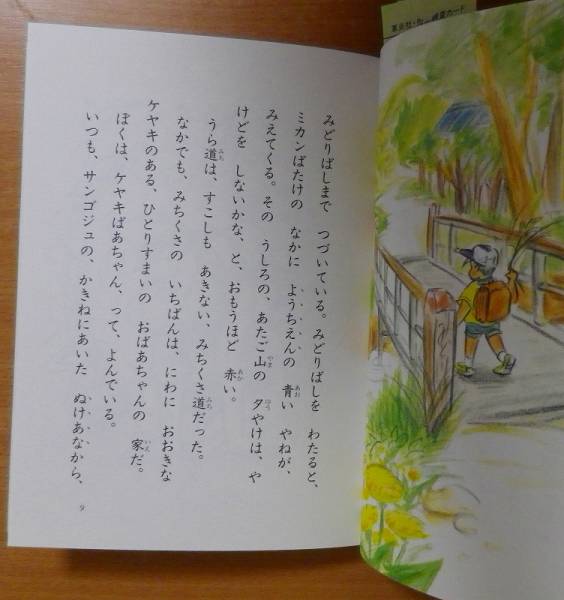 みどりばしまで つづいている。みどりばしを わたると、
ミカンばたけの なかに ようちえんの 青い やねが、
みえてくる。その うしろの、あたご山の 夕やけは、や
けどを しないかな、と、おもうほど 赤い。
うら道は、すこしも あきない、みちくさ道だった。
なかでも、みちくさの いちばんは、にわに おおきな
ケヤキのある、ひとりすまいの おばあちゃんの 家だ。
ぼくは、ケヤキばあちゃん、って、よんでいる。
いつも、サンゴジュの、かきねにあいた ぬけあなから、
9